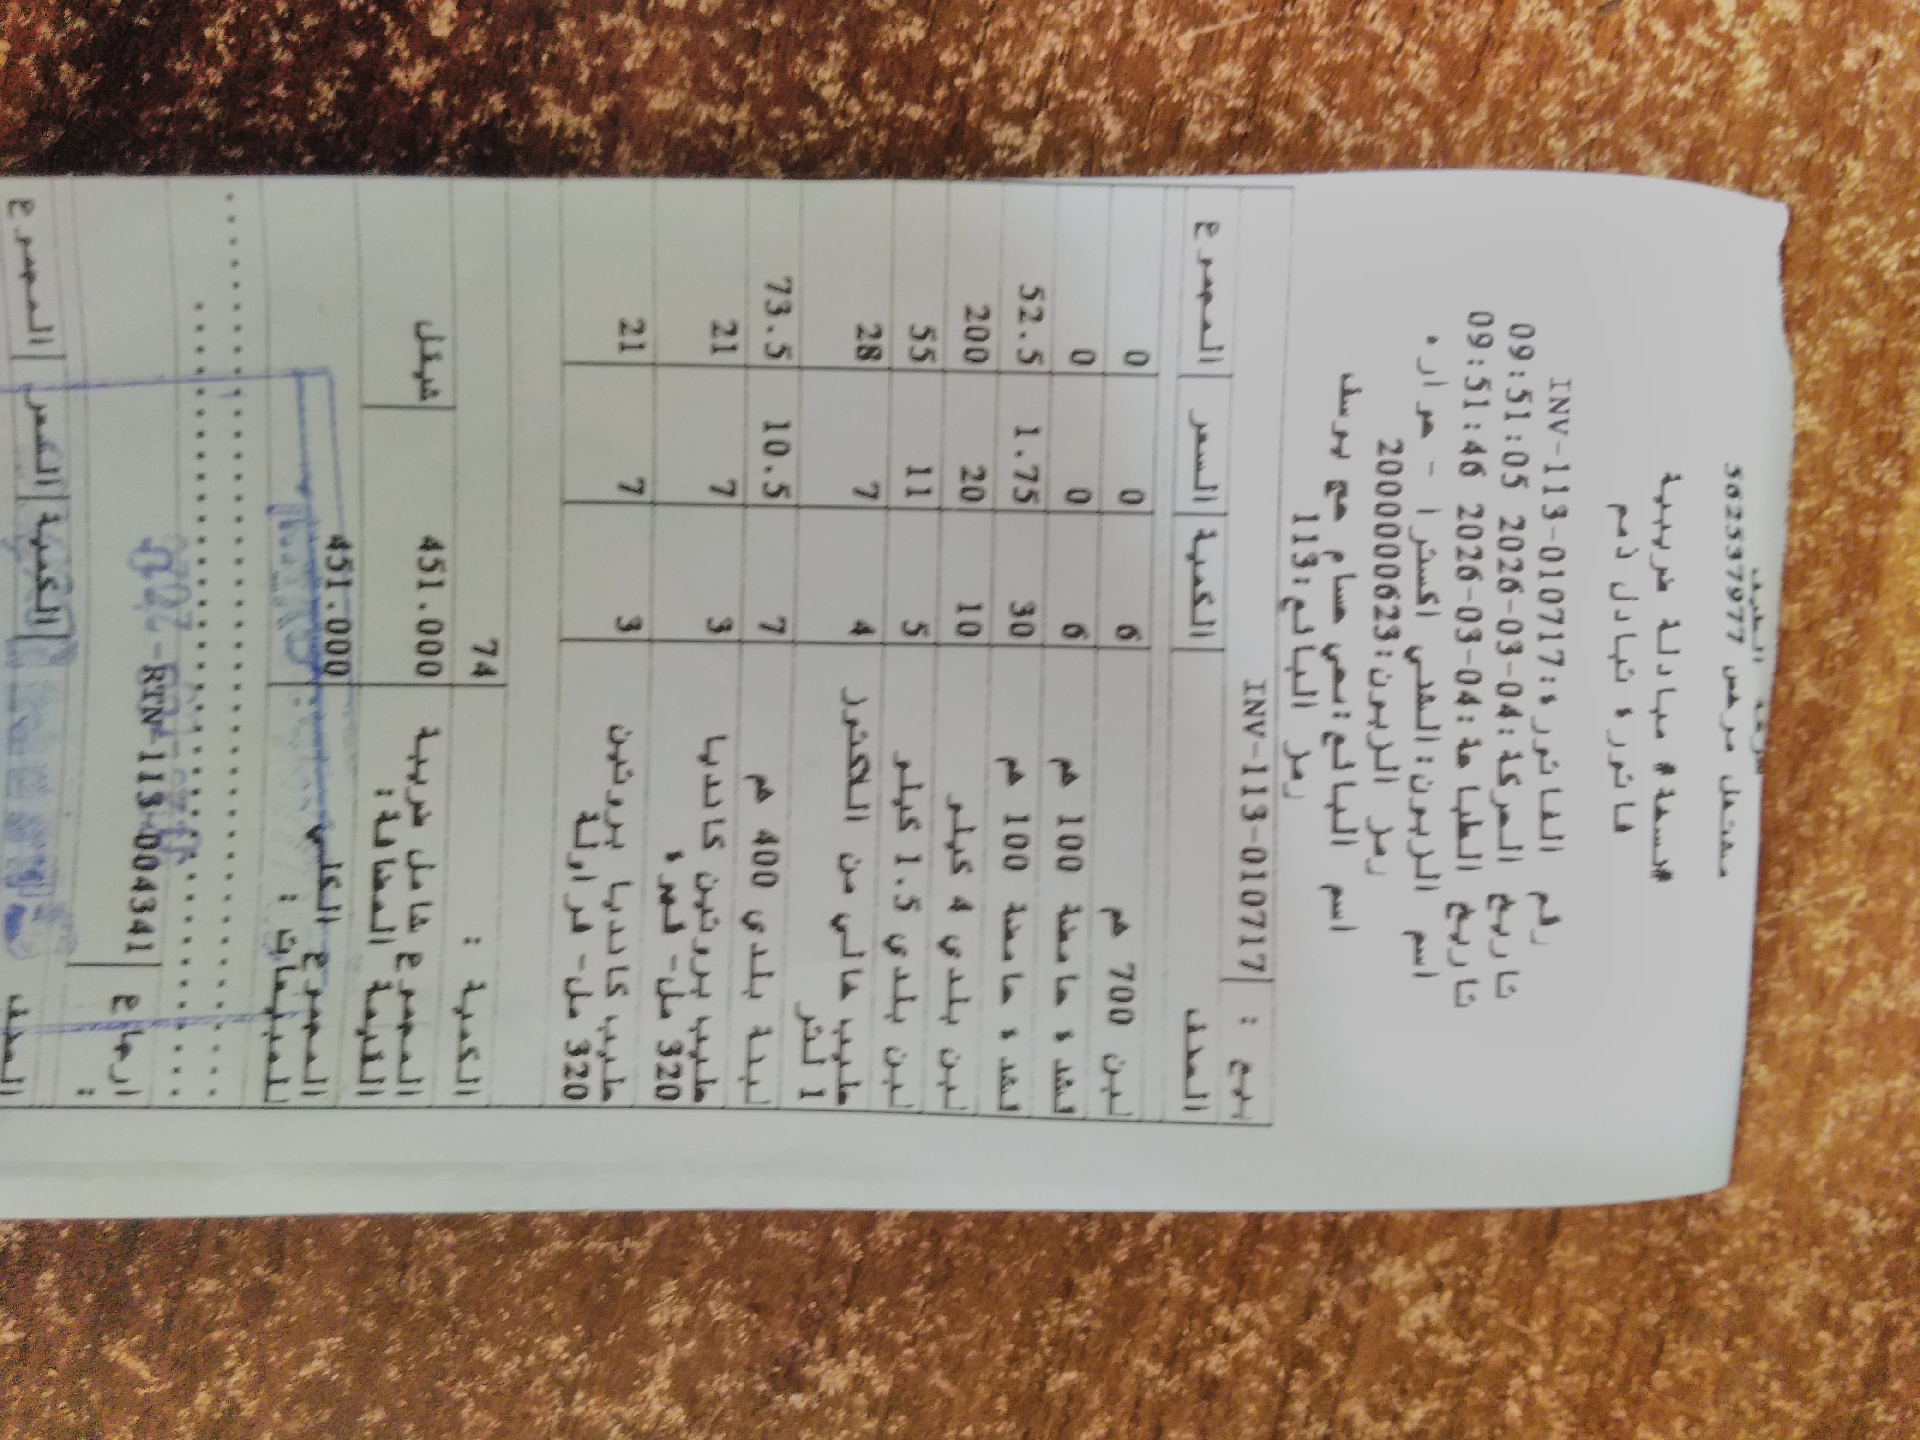 مشتغل مرخص 562537977
#نسخة# مبادلة ضريبية
فاتورة تبادل ذمم
رقم الفاتورة:INV-113-010717
تاريخ الحركة:2026-03-04 09:51:05
تاريخ الطباعة:2026-03-04 09:51:46
اسم الزبون:الشني اكسترا - هواره
رمز الزبون:2000000623
اسم البائع: حسام حج يوسف
رمز البائع:113
بيع : INV-113-010717
الصنف الكمية السعر المجموع
لبن 700 غم 6 0 0
لشدة حامضة 100 غم 6 0 0
لشدة حامضة 100 غم 30 1.75 52.5
لبن بلدي 4 كيلو 10 20 200
لبن بلدي 1.5 كيلو 5 11 55
حليب خالي من اللاكتوز 4 7 28
1 لتر
لبنة بلدي 400 غم 7 10.5 73.5
حليب بروتين كانديا 3 7 21
320 مل- قهوة
حليب كانديا بروتين 3 7 21
320 مل- فراولة
الكمية : 74
المجموع شامل ضريبة 451.000 شيقل
القيمة المضافة:
المجموع الكلي 451.000
للمبيعات :
ارجاع RTN-113-004341
:
الصنف الكمية السعر المجموع